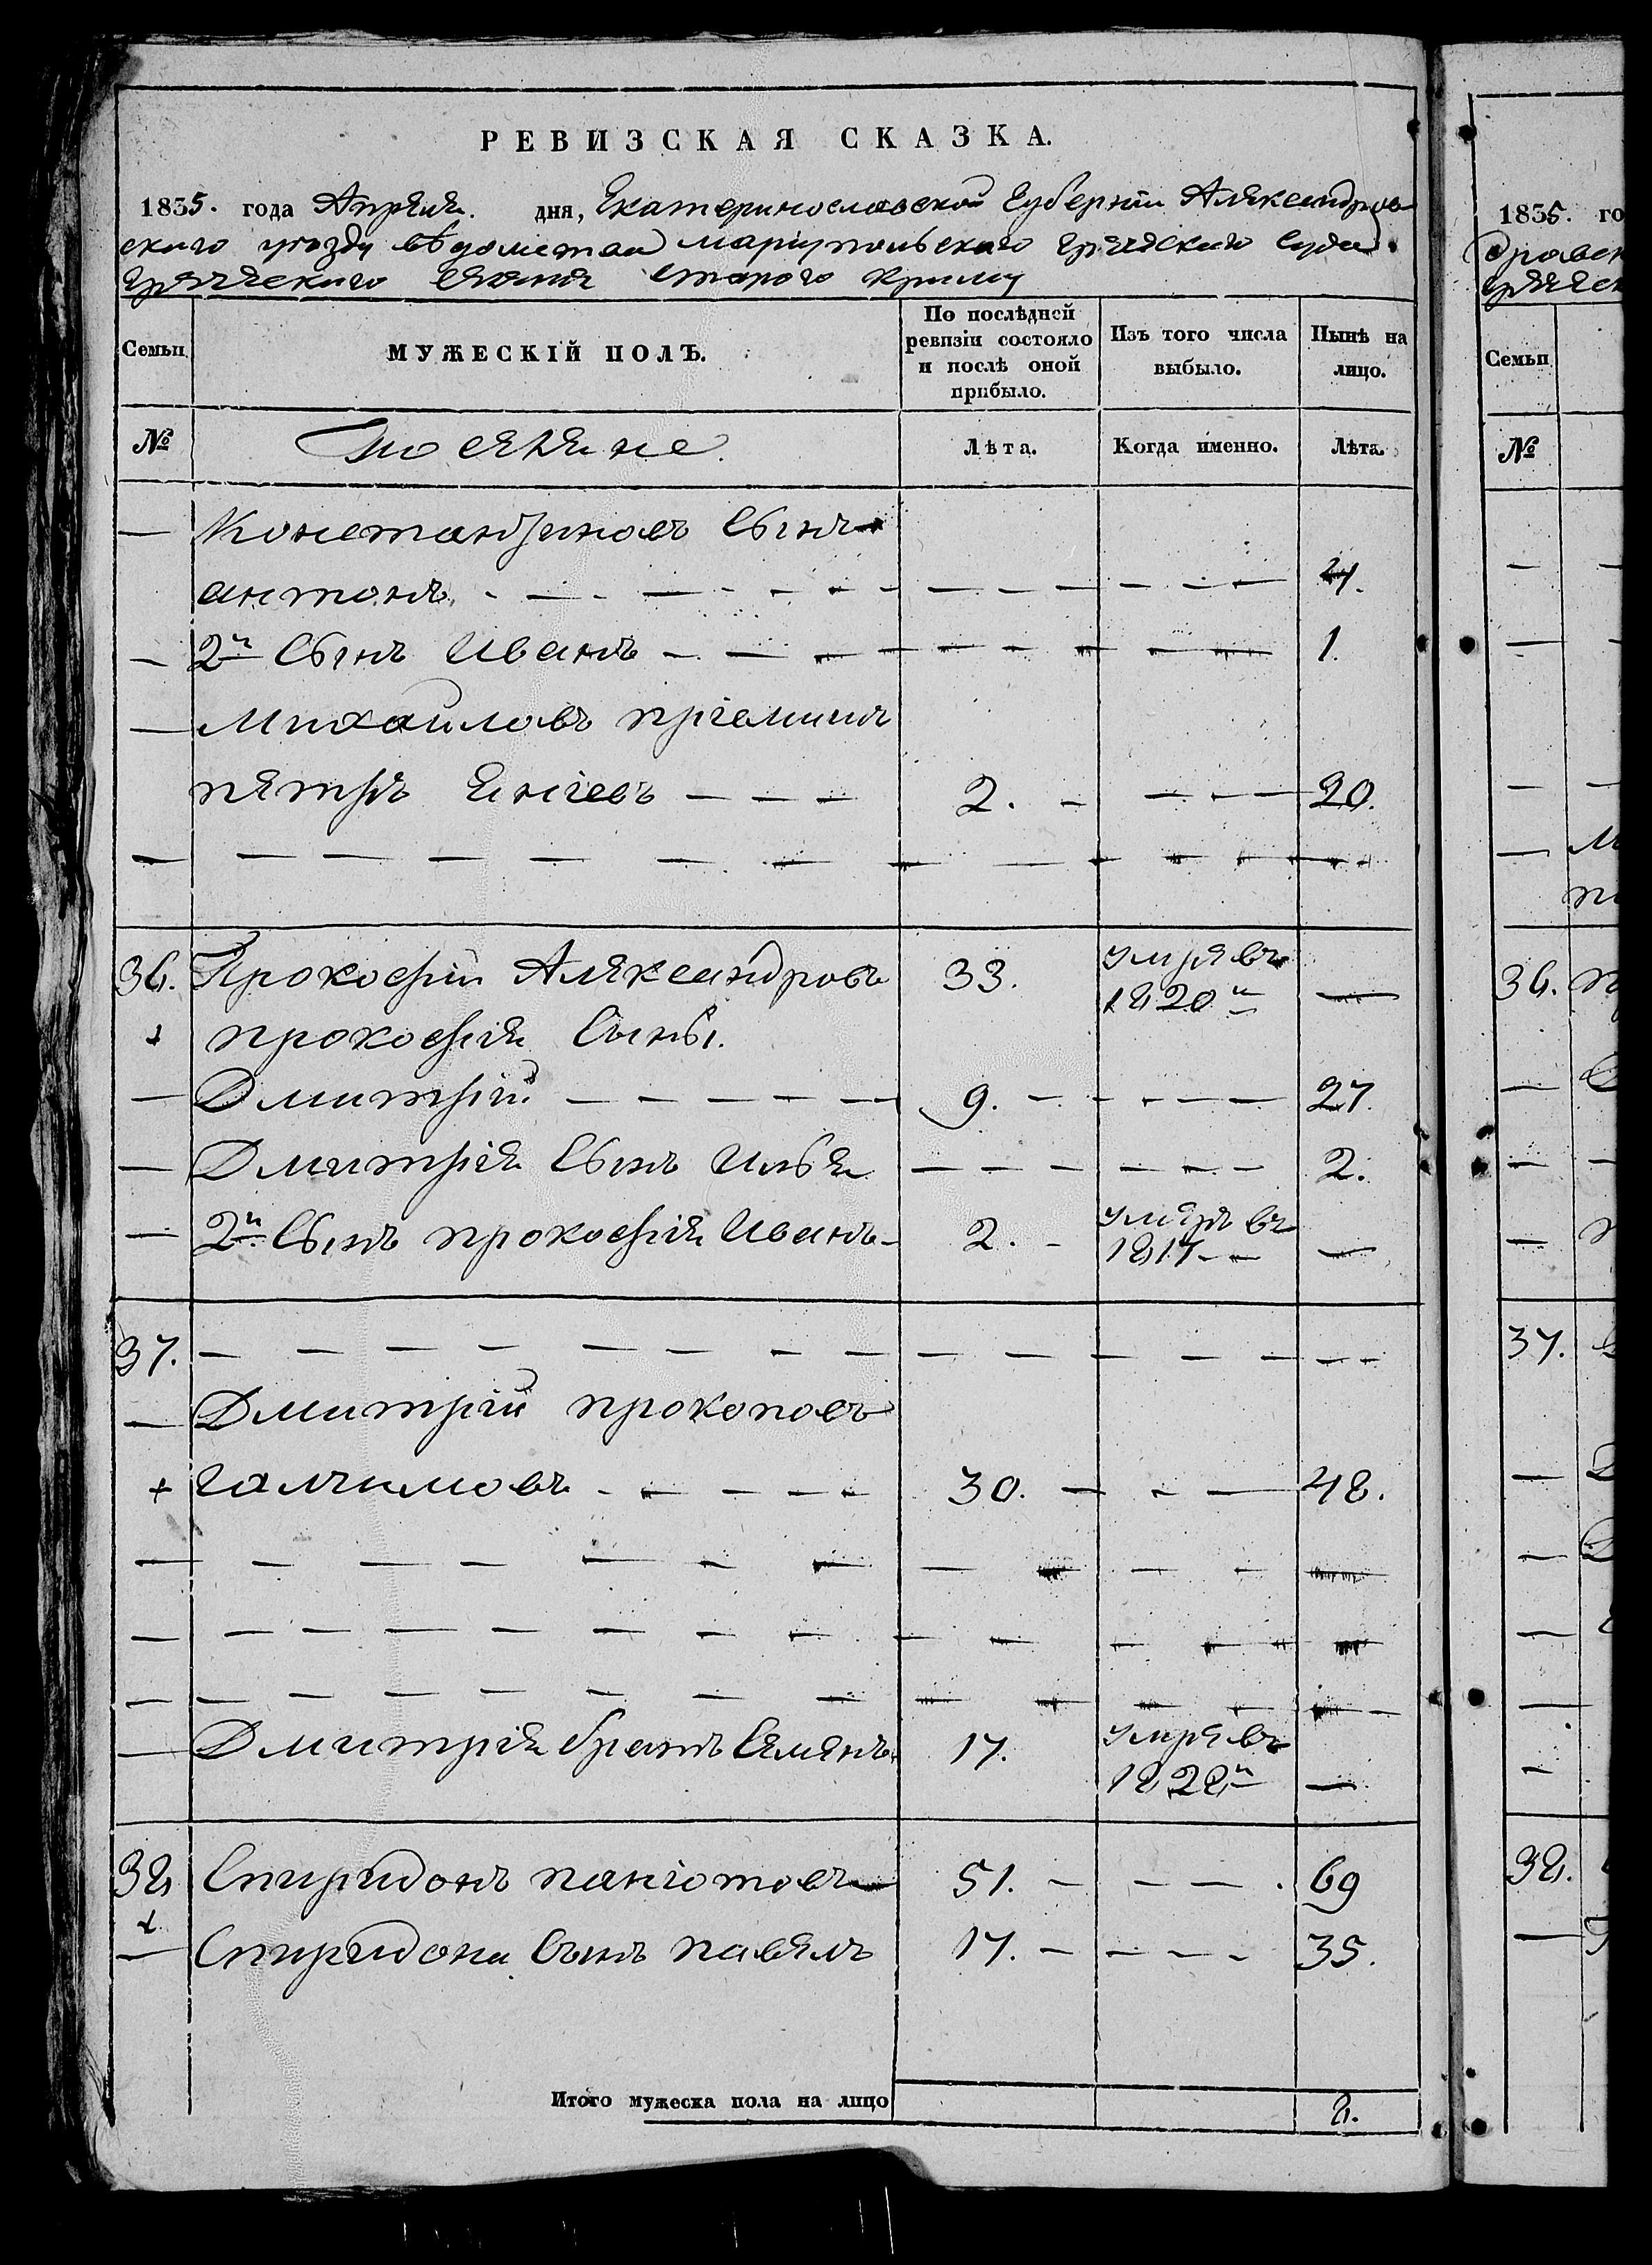 РЕВИЗСКАЯ СКАЗКА.
1835. года Апреля. дня, Екатеринославской Губерніи Александров-
скаго уезду вѣдомства Маріупольскаго греческаго суда
греческаго селения Старого Крыму
Семьи
МУЖЕСКІЙ ПОЛЪ.
По послѣдней ревизіи состояло и послѣ оной прибыло.
Изъ того числа выбыло.
Нынѣ на лицо.
№
Поселяне.
Лѣта.
Когда именно.
Лѣта.
— Константиновъ сынъ
антонъ — — — 4.
— 2й сынъ Иванъ — — — 1.
— Михаиловъ пріемишъ
петръ — — — 2. — — 20.
— — — — — — — —
36. Прокофій Александровъ 33. умре въ 1820м —
+ прокофія сыны.
— Дмитрій — — — 9. — — 27.
— Дмитрія сынъ Илья — — — 2.
— 2й сынъ прокофія Иванъ — 2. — умре въ 1817 — —
37. — — — — — — — —
— Дмитрій прокоповъ
+ — — — 30. — — 48.
— — — — — — — —
— — — — — — — —
— — — — — — — —
— Дмитрія братъ Семенъ 17. умре въ 1828м —
38. Спиридонъ панiотовъ — 51. — — 69
+
— Спиридона сынъ павелъ 17. — — 35.
Итого мужеска пола на лицо 8.
1835. го
Семьи
№
36.
37.
38.